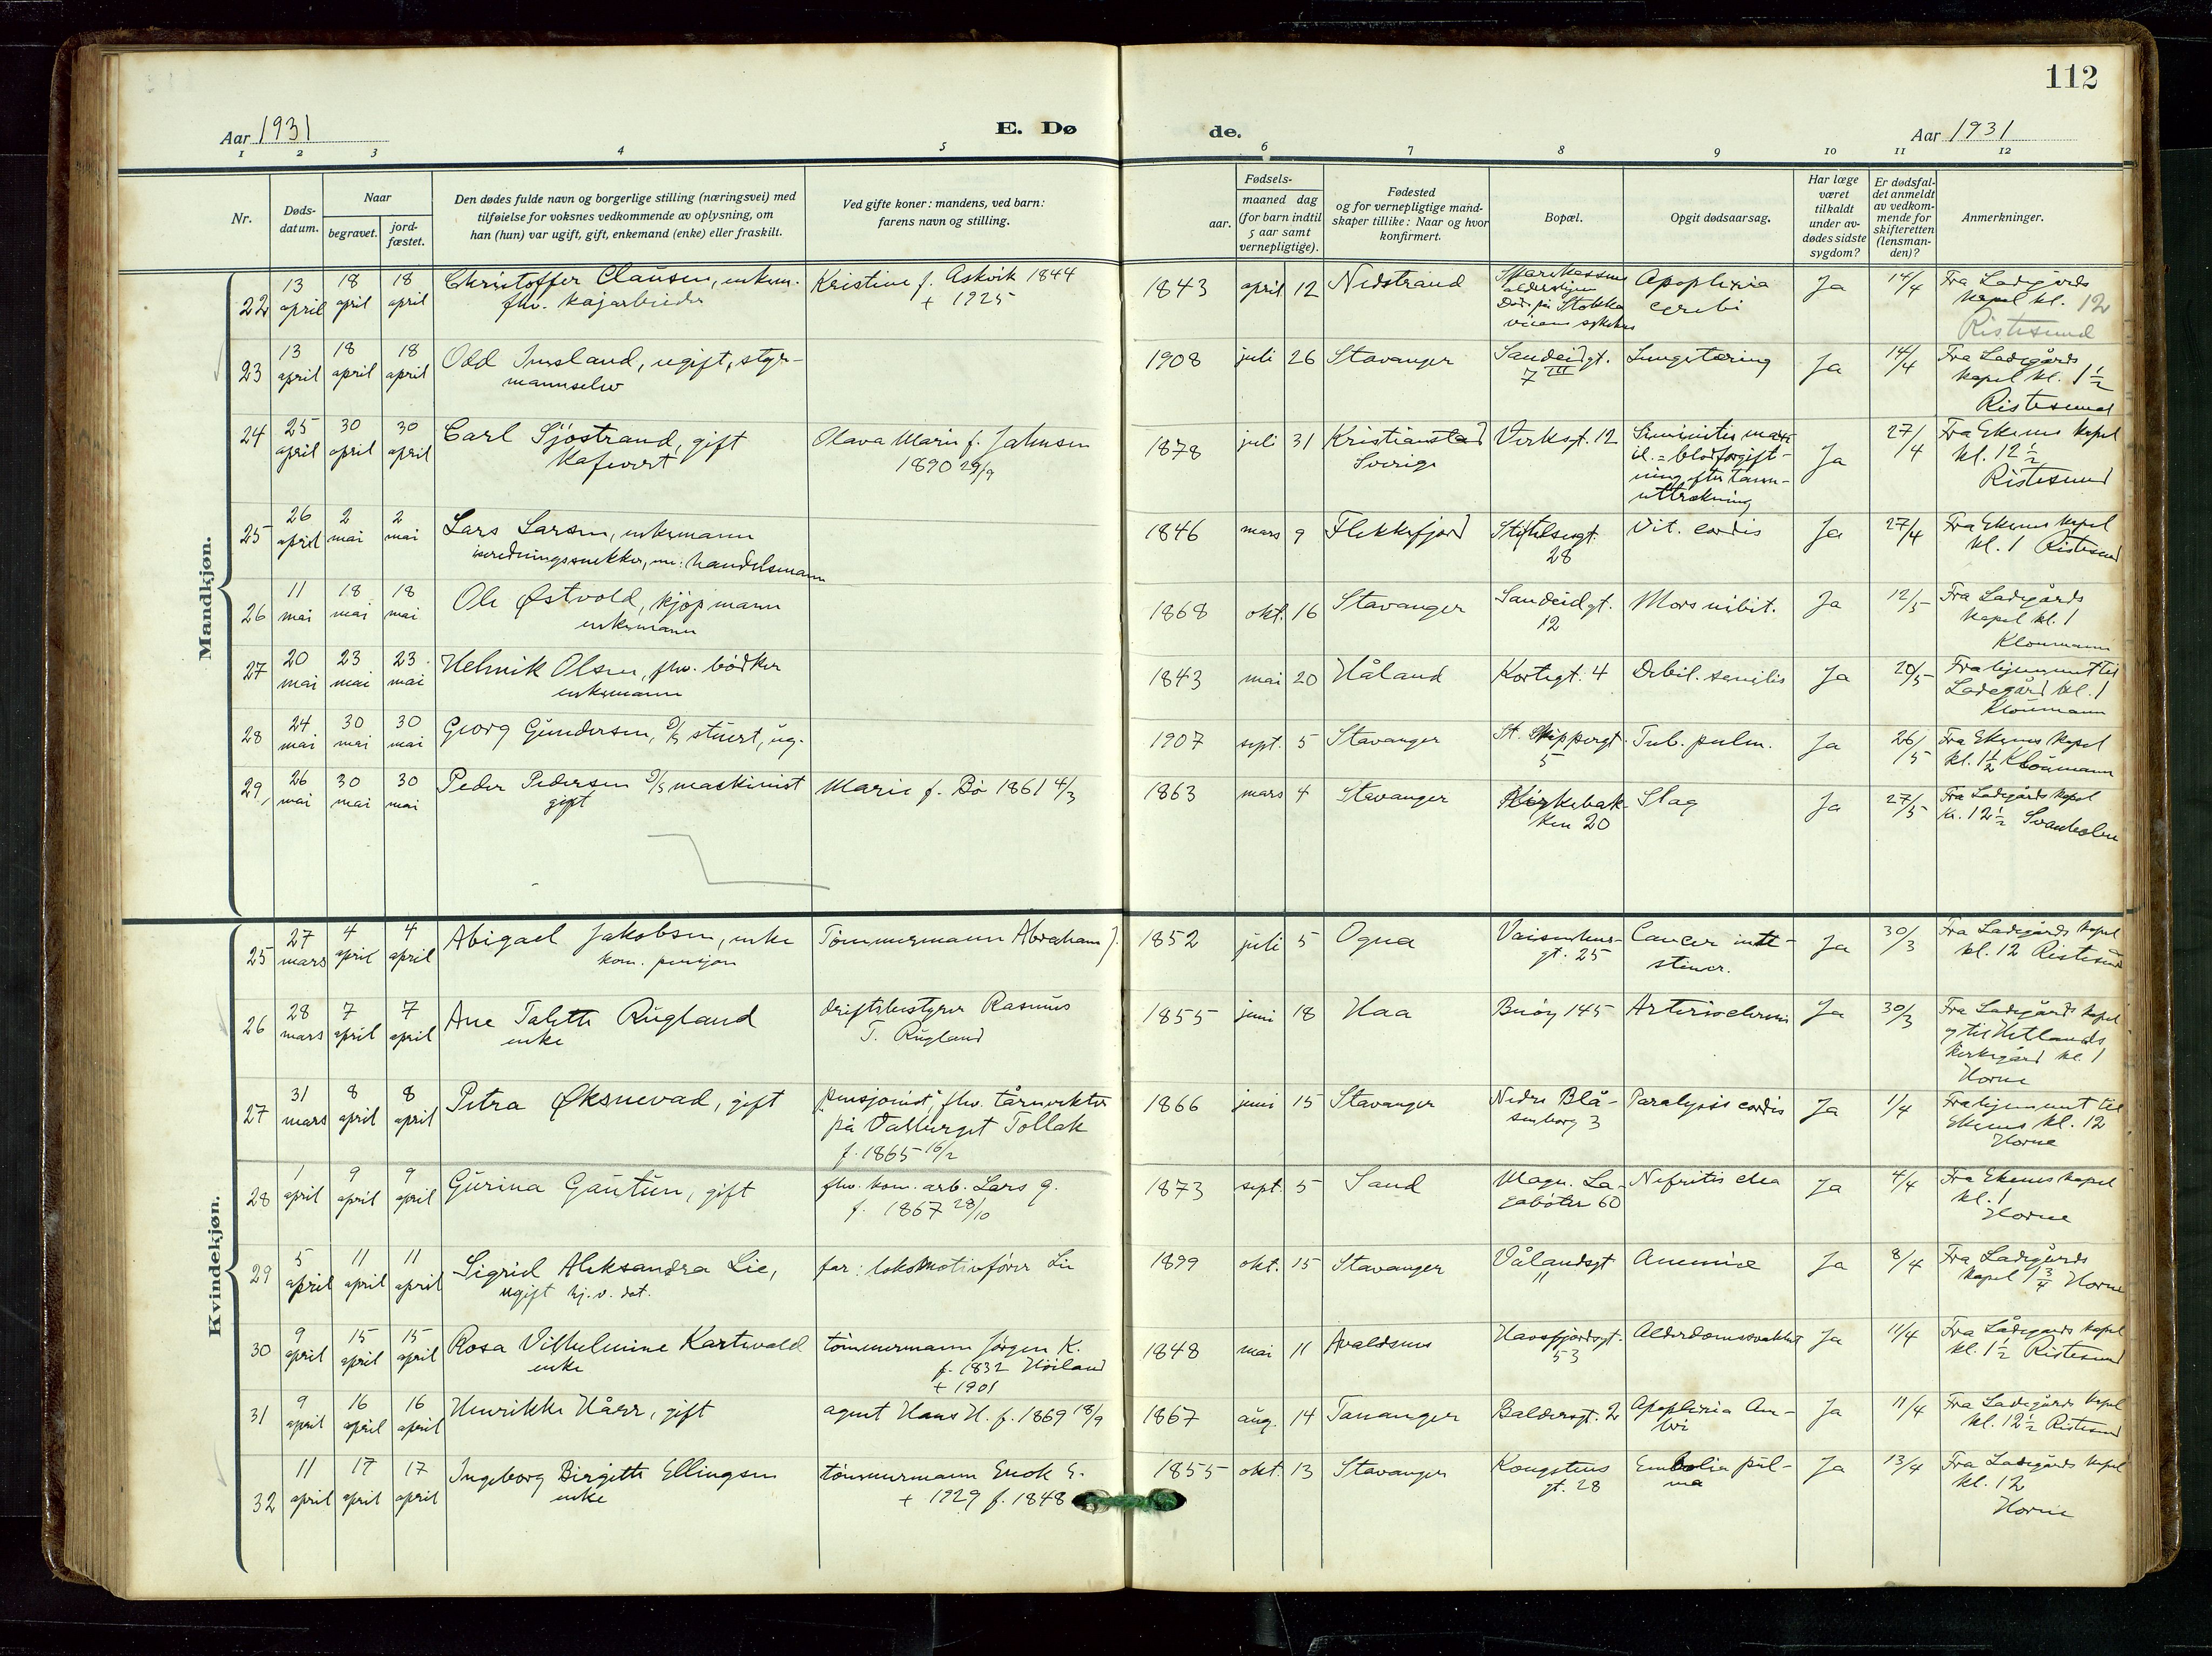 112
Aar 1931
E. Dø
de.
Aar 1931
1 2 3 4 5 6 7 8 9 10 11 12
Nr.
Døds-
datum.
Naar
begravet.
jord-
fæstet.
Den dødes fulde navn og borgerlige stilling (næringsvei) med
tilføielse for voksnes vedkommende av oplysning, om
han (hun) var ugift, gift, enkemand (enke) eller fraskilt.
Ved gifte koner: mandens, ved barn:
farens navn og stilling.
Fødsels-
aar.
maaned dag
(for barn indtil
5 aar samt
vernepligtige).
Fødested
og for vernepligtige mand-
skaper tillike: Naar og hvor
konfirmert.
Bopæl.
Opgit dødsaarsag.
Har læge
været
tilkaldt
under av-
dødes sidste
sygdom?
Er dødsfal-
det anmeldt
av vedkom-
mende for
skifteretten
(lensman-
den)?
Anmerkninger.
Mandkjøn.
22
13 april
18 april
18 april
Christoffer Clausen, enkem.
fhv. kajarbeider
Kristine f. Askvik 1844
+ 1925
1843 april 12
Nedstrand
Apoplexia
cerebi
Ja
14/4
Fra Ladegårds
kapel kl. 12
Ristesund
23
13 april
18 april
18 april
Odd Imsland, ugift, styr-
mannselev
1908 juli 26
Stavanger
Sandeidgt.
7 III
Lungetæring
Ja
14/4
Fra Ladegårds
kapel kl. 1½
Ristesund
24
25 april
30 april
30 april
Carl Sjöstrand, gift
Kafevert
Olava Marie f. Jahnsen
1890 29/9
1878 juli 31
Kristianstad
Sverige
Verksgt. 12
il. = blodforgift-
ning efter tann-
uttrekning
Ja
27/4
Fra Ekenes kapel
kl. 12½
Ristesund
25
26 april
2 mai
2 mai
Lars Larsen, enkemann
innredningssnekker, nu: handelsmann
1846 mars 9
Flekkefjord
Stiftelsesgt.
28
Vit. cordis
Ja
27/4
Fra Ekenes kapel
kl. 1 Ristesund
26
11 mai
18 mai
18 mai
Ole Østvold, kjøpmann
enkemann
1868 okt. 16
Stavanger
Sandeidgt.
12
Mors subit.
Ja
12/5
Fra Ladegårds
kapel kl. 1
Kloumann
27
20 mai
23 mai
23 mai
Helmik Olsen, fhv. bödker
enkemann
1843 mai 20
Håland
Kortegt. 4
Debil. senilis
Ja
20/5
Fra hjemmet til
Ladegård kl. 1
Kloumann
28
24 mai
30 mai
30 mai
Georg Gundersen, D/S stuert, ug.
1907 sept. 5
Stavanger
St. Skippergt.
5
Tub. pulm.
Ja
26/5
Fra Ekenes kapel
kl. 1½ Kloumann
29
26 mai
30 mai
30 mai
Peder Pedersen D/S maskinist
gift
Marie f. Bö 1861 4/3
1863 mars 4
Stavanger
Kirkebak-
ken 20
Slag
Ja
27/5
Fra Ladegårds kapel
kl. 12½ Svanholm
Kvindekjøn.
25
27 mars
4 april
4 april
Abigael Jakobsen, enke
kom. pensjon
Tömmermann Abraham J.
1852 juli 5
Ogna
Vaisenhus-
gt. 25
Cancer inte-
stiner.
Ja
30/3
Fra Ladegårds kapel
kl. 12 Ristesund
26
28 mars
7 april
7 april
Ane Talette Rugland
enke
driftsbestyrer Rasmus
T. Rugland
1855 juni 18
Haa
Buöy 145
Arteriosclerosis
Ja
30/3
Fra Ladegårds kapel
og til Hetlands
kirkegård kl. 1
Horne
27
31 mars
8 april
8 april
Petra Øksnevad, gift
pensjonist, fhv. tårnvekter
på Valberget Tollak
f. 1865 16/2
1866 juni 15
Stavanger
Nedre Blå-
senborg 3
Paralysis cordis
Ja
1/4
Fra hjemmet til
Ekenes kl. 12
Horne
28
1 april
9 april
9 april
Gurina Gautun, gift
fhv. kom. arb. Lars G.
f. 1867 28/10
1873 sept. 5
Sand
Magn. La-
gabøter 60
Nefritis chr
Ja
4/4
Fra Ekenes kapel
kl. 1
Horne
29
5 april
11 april
11 april
Sigrid Aleksandra Lie,
ugift hj.v. dat.
far: lokomotivfører Lie
1899 okt. 15
Stavanger
Vålandsgt
11
Anemie
Ja
8/4
Fra Ladegårds
kapel 1¾ Horne
30
9 april
15 april
15 april
Rosa Vilhelmine Kartevold
enke
tömmermann Jørgen K.
f. 1832 Höiland
+ 1901
1848 mai 11
Avaldsnes
Havsfjordsgt.
53
Alderdomssvakhet
Ja
11/4
Fra Ladegards kapel
kl. 1½ Ristesund
31
9 april
16 april
16 april
Henrikke Hårr, gift
agent Hans H. f. 1869 18/9
1867 aug. 14
Tananger
Baldersgt. 2
Apoplexia
Ja
11/4
Fra Ladegårds kapel
kl. 12½ Ristesund
32
11 april
17 april
17 april
Ingeborg Birgitte Ellingsen
enke
tömmermann Enok E.
+ 1929 f. 1848
1855 okt. 13
Stavanger
Kongstens
gt. 28
Embolia pul-
ma
Ja
13/4
Fra Ladegårds kapel
kl. 12
Horne